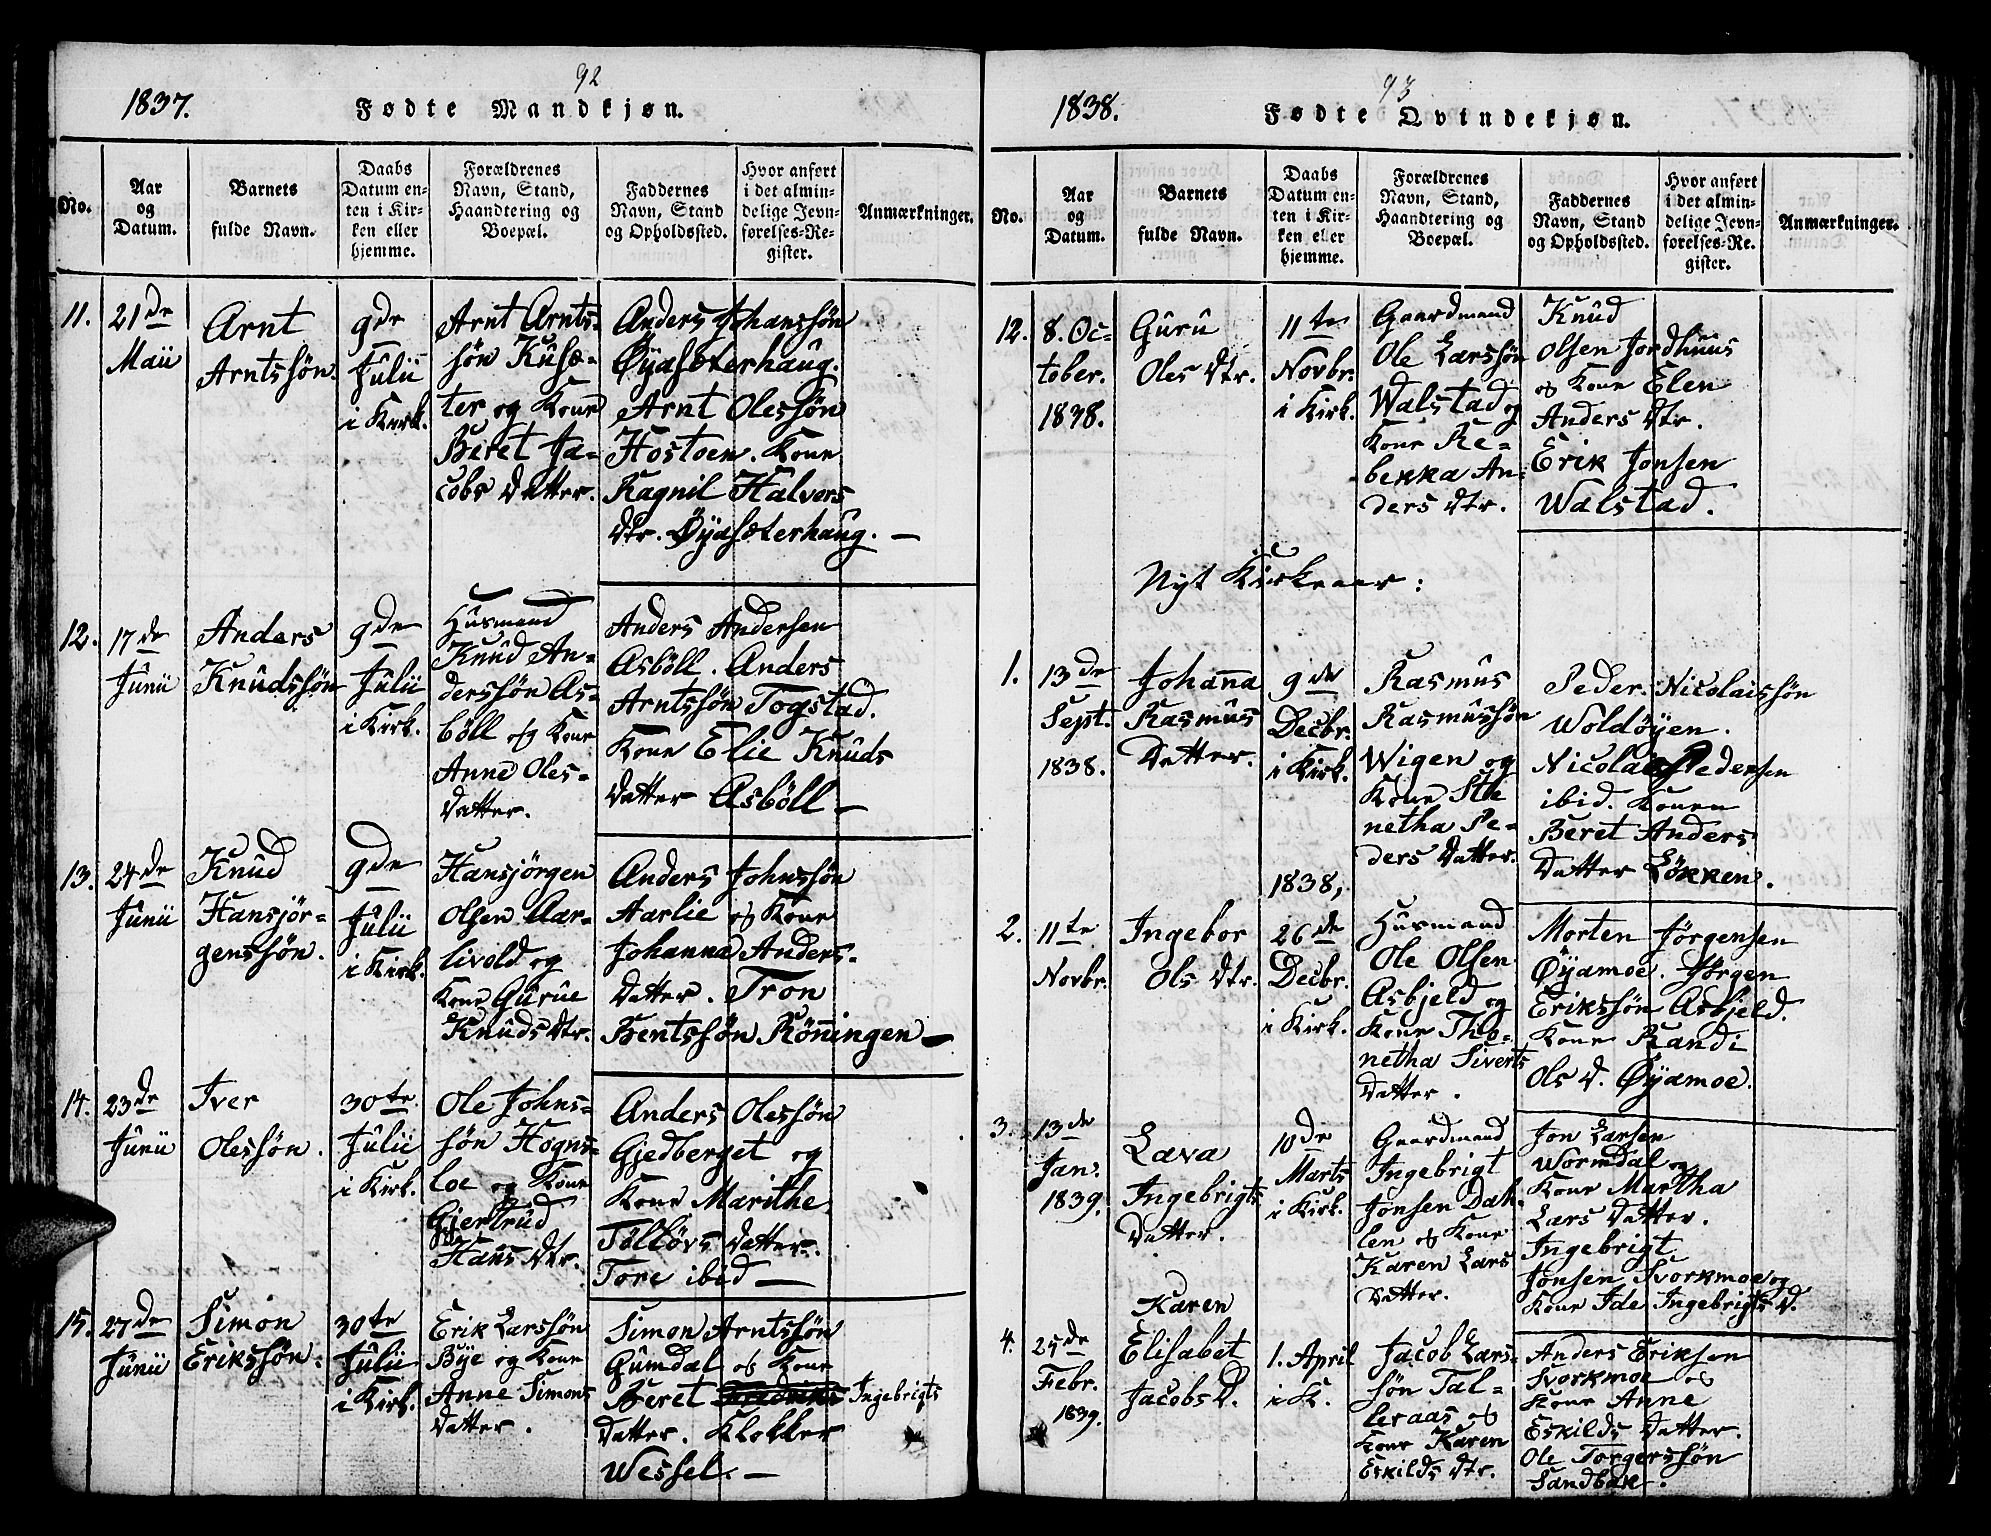 92
1837.
Fødte Mandkjøn.
No.
Aar
og
Datum.
Barnets
fulde Navn.
Daabs
Datum en-
ten i Kir-
ken eller
hjemme.
Forældrenes
Navn, Stand,
Haandtering og
Boepæl.
Faddernes
Navn, Stand
og Opholdssted.
Hvor anført
i det almin-
delige Jevn-
førelses-Re-
gister.
Anmærkninger.
11.
21de
Maii
Arnt
Arntssøn.
9de
Julii
i Kirk.
Arnt Arnts-
søn Kusæ-
ter og Kone
Beret Ja-
cobs Datter.
Anders Johanssøn
Øyasæterhaug.
Arnt Olessøn
Hostoen. Kone
Ragnil Halvors
Dtr. Øyasæterhaug. —
12.
17de
Junii
Anders
Knudssøn
9de
Julii
i Kirk.
Husmand
Knud An-
derssøn As-
böll og Kone
Anne Oles-
datter.
Anders Andersen
Asböll. Anders
Arntssøn Togstad.
Kone Elie Knuds
Datter Asböll —
13.
24de
Junii
Knud
Hansjør-
genssøn.
9de
Julii
i Kirk.
Hansjörgen
Olsen Aar-
livold og
Kone Gurue
Knuds Dtr.
Anders Johnssøn
Aarlie og Kone
Johanna Anders-
Datter. Tron
Bentssøn Rönningen —
14.
23de
Junii
Iver
Olessøn.
30te
Julii
i Kirk.
Ole Johns-
søn Hogns-
loe og Kone
Gjertrud
Hans Dtr.
Anders Olessøn
Gjedberget og
Kone Marithe
Tolløvs Datter.
Tore ibid —
15.
27de
Junii
Simon
Erikssøn.
30te
Julii
i Kirk.
Erik Larssøn
Bye og Kone
Anne Simons
Datter.
Simon Arntssøn
Gumdal og Kone
Beret Ingebrigts
Datter. Klokker
Wessel. —
93
1838.
Fødte Qvindekjøn.
No.
Aar
og
Datum.
Barnets
fulde Navn.
Daabs
Datum en-
ten i Kir-
ken eller
hjemme.
Forældrenes
Navn, Stand,
Haandtering og
Boepæl.
Faddernes
Navn, Stand
og Opholdssted.
Hvor anført
i det almin-
delige Jevn-
førelses-Re-
gister.
Anmærkninger.
12.
8. Oc-
tober.
1838.
Guru
Oles Dtr.
11te
Novbr.
i Kirk.
Gaardmand
Ole Larssøn
Walstad og
Kone Re-
bekka An-
ders Dtr.
Knud
Olsen Jordhuus
og Kone Elen
Anders Dtr.
Erik Jonsen
Walstad.
Nyt Kirkeaar:
1.
13de
Sept.
1838.
Johanna
Rasmus
Datter.
9de
Decbr.
i Kirk.
Rasmus
Rasmussøn
Wigen og
Kone Ste
netha Pe-
ders Datter.
Peder Nicolaissøn
Woldøyen.
Nicolai Pedersen
ibid. Konen
Beret Anders
Datter Løkken.
2.
11te
Novbr.
Ingebor
Ols Dtr.
1838,
26de
Decbr.
i Kirk.
Husmand
Ole Olsen
Asbjeld og
Kone Tho-
netha Siverts
Datter.
Morten Jørgensen
Øyamoe. Jørgen
Erikssøn Asbjeld.
Kone Randi
Ols D. Øyamoe.
3.
13de
Jan.
1839.
Lava
Ingebrigts
Datter.
10de
Marts
i Kirk.
Gaardmand
Ingebrigt
Jonsen Dah-
len og Kone
Karen Lars
Datter.
Jon Larsen
Wormdal og
Kone Martha
Lars Datter.
Ingebrigt
Jonsen Svorkmoe og
Kone Ide Ingebrigts D.
4.
25de
Febr.
1839.
Karen
Elisabet
Jacobs D.
1. April
i K.
Jacob Lars-
søn Tal-
leraas og
Kone Karen
Eskilds Dtr.
Anders Eriksen
Svorkmoe og
Kone Anne
Eskilds Datter.
Ole Torgerssøn
Sandbak.